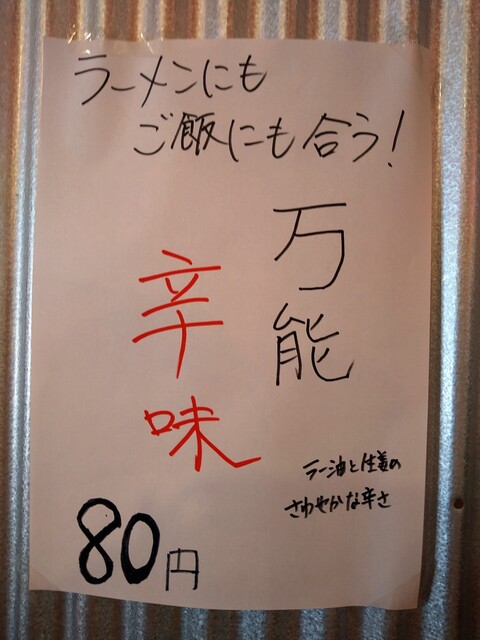 ラーメンにも
ご飯にも合う!
万能
辛味
ラー油と生姜の
さわやかな辛さ
80円